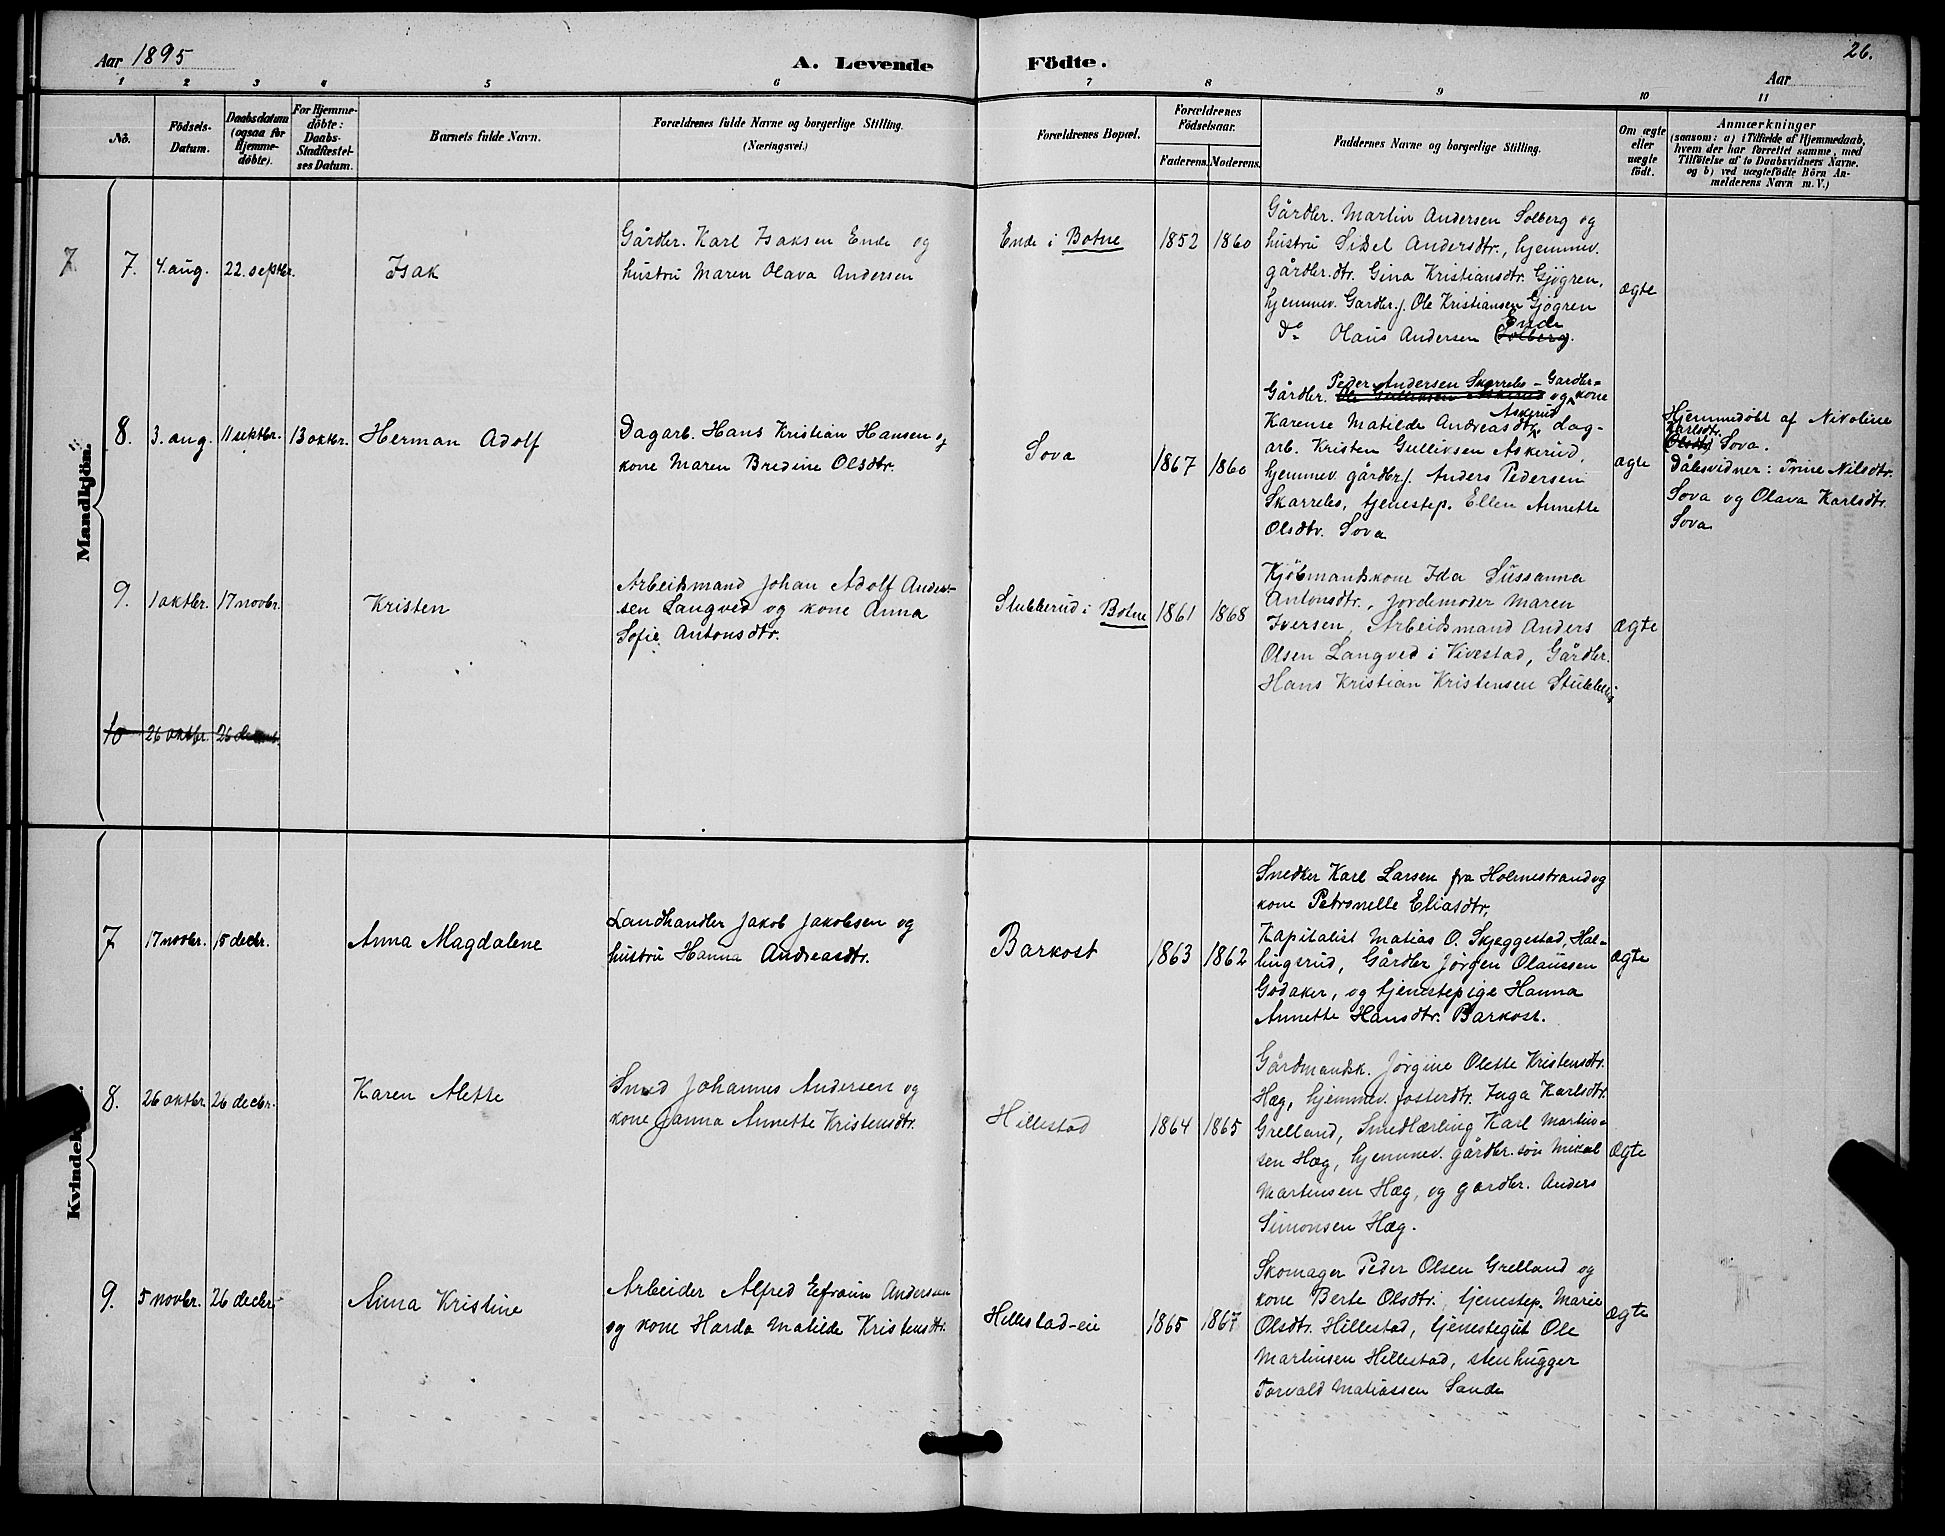 Aar 1895
A. Levende Födte.
26.
Aar
1 2 3 4 5 6 7 8 9 10 11
No.
Födsels-
Datum.
Daabsdatum
(ogsaa for
Hjemme-
döbte).
For Hjemme-
döbte:
Daabs-
Stadfæstel-
ses Datum.
Barnets fulde Navn.
Forældrenes fulde Navne og borgerlige Stilling.
(Næringsvei.)
Forældrenes Bopæl.
Forældrenes
Födselsaar.
Faderens. Moderens.
Faddernes Navne og borgerlige Stilling.
Om ægte
eller
uægte
födt.
Anmærkninger
(saasom: a) i Tilfælde af Hjemmedaab,
hvem der har forrettet samme, med
Tilföielse af to Daabsvidners Navne,
og b) ved uægtefödte Börn An-
melderens Navn m. V.)
Mandkjön.
7
7. 4. aug. 22. septbr.
Isak
Gårdbr. Karl Isaksen Ende og
hustru Maren Olava Andersen
Ende i Botne
1852 1860
Gårdbr. Martin Andersen Solberg og
hustru Sidsel Andersdtr., hjemmev.
gårdbr.dtr. Gina Kristiansdtr. Gjøgren,
hjemmev. Gardbr.s. Ole Kristiansen Gjøgren
Ende
Do Olaus Andersen (Solberg).
ægte
8. 3. aug. 11 septbr. 13 oktbr.
Herman Adolf
Dagarb. Hans Kristian Hansen og
kone Maren Bredine Olsdtr.
Sova
1867 1860
Peder Andersen Skarrebo – Gardbr=
Gårdbr. Ole Gulliksen Askerud og kone
Askerud
Karense Matilde Andreasdtr, dag-
arb. Kristen Gullivsen Askerud,
hjemmev. gårdbr.s. Anders Pedersen
Skarrebo, tjenestep. Ellen Annette
Olsdtr. Sova
ægte
Hjemmedöbt af Nikoline
Karlsdtr.
Olsdtr Sova.
Dåbsvidner: Trine Nilsdtr.
Sova og Olava Karlsdtr.
Sova
9. 1 oktbr. 17 novbr.
Kristen
Arbeidsmand Johan AdolfAnder-
sen Langved og kone Anna
Sofie Antonsdtr.
Stubberud i Botne
1861 1868
Kjöbmandskone Ida Sussanna
Antonsdtr., jordemoder Maren
Iversen, Arbeidsmand Anders
Olsen Langved i Vivestad, Gårdbr.
Hans Kristian Kristensen
ægte
10 26 oktbr. 26 decbr.
7 17 novbr. 15 decbr.
Anna Magdalene
Landhandler Jakob Jakobsen og
hustru Hanna Andreasdtr.
Barkost
1863 1862
Snedker Karl Larsen fra Holmestrand og
kone Petronelle Eliasdtr,
Kapitalist Matias O. Skjeggestad, Hal-
lingerud, Gårdbr Jørgen Olaussen
Godaker, og tjenestepige Hanna
Annette Hansdtr. Barkost.
ægte
8. 26 oktbr 26 decbr.
Karen Alette
Smed Johannes Andersen og
kone Janna Annette Kristensdtr.
Hillestad
1864 1865
Gårdmandsk. Jørgine Olette Kristensdtr.
Hæg, hjemmev. fosterdtr. Inga Karlsdtr.
Grelland, Smedlærling Karl Martin-
sen Hæg, hjemmev. gårdbr. søn Mikal
Martinsen Hæg, og gardbr. Anders
Simonsen Hæg.
ægte
9. 5 novbr. 26 decbr.
Anna Kristine
Arbeider Alfred Eefraim Andersen
og kone Harda Matilde Kristensdtr.
Hillestad-eie
1865 1867
Skomager Peder Olsen Grelland og
kone Berte Olsdtr., tjenestep. Marie
Olsdtr. Hillestad, tjenestegut Ole
Martinsen Hillestad, stenhugger
Torvald Matiassen Sande
ægte